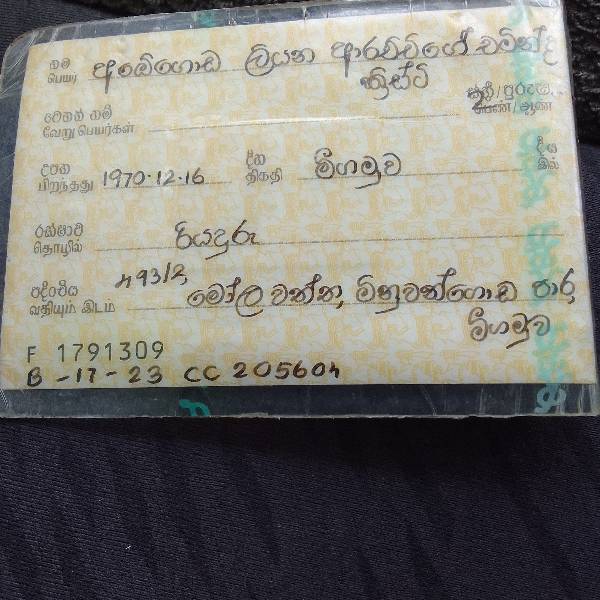 නම අඹේගොඩ ලියන ආරච්චිගේ චමින්ද
பெயர் ක්‍රිස්ටි
වෙනත් නම් ස්ත්‍රී/පුරුෂ
வேறு பெயர்கள் பெண்/ஆண்
උපන 1970.12.16 දින මීගමුව දීය
பிறந்தது திகதி இல்
රක්ෂාව රියදුරු
தொழில்
පදිංචිය 493/2, මෝල වත්ත, මිනුවන්ගොඩ පාර,
வதியும் இடம் මීගමුව
F 1791309
B -17-23 CC 205604